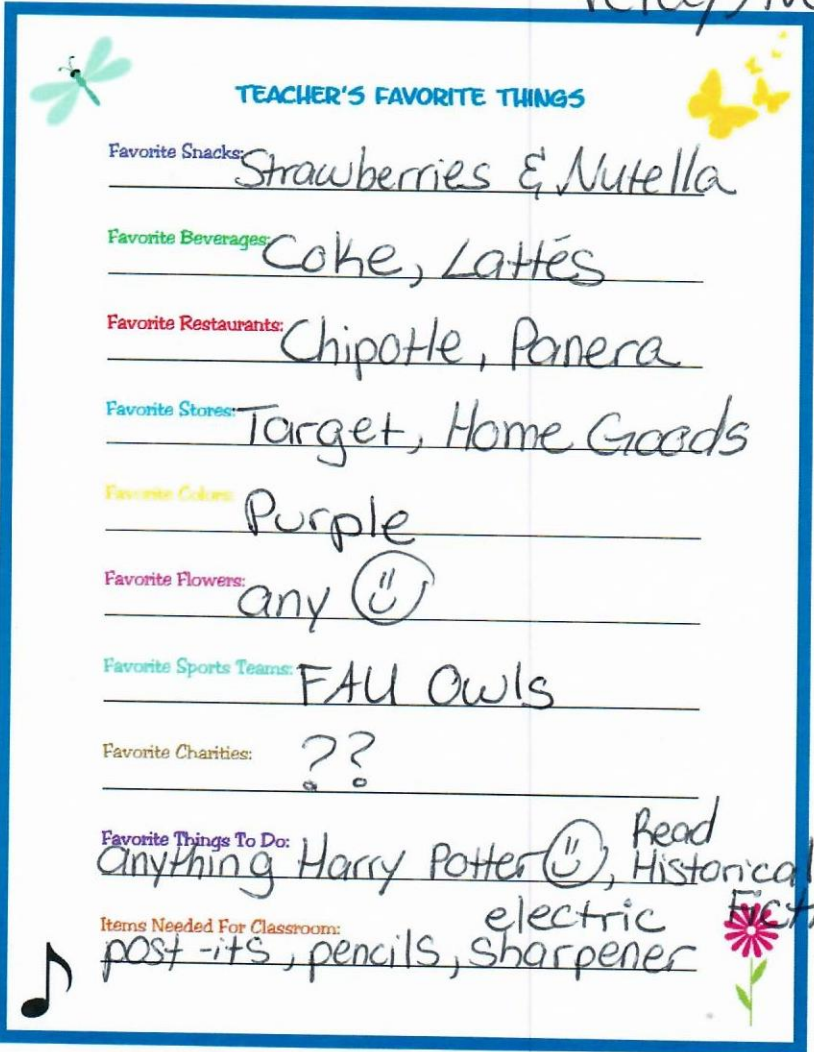 TEACHER'S FAVORITE THINGS
Favorite Snacks: Strawberries & Nutella
Favorite Beverages: Coke, Lattés
Favorite Restaurants: Chipotle, Panera
Favorite Stores: Target, Home Goods
Favorite Colors: Purple
Favorite Flowers: any
Favorite Sports Teams: FAU Owls
Favorite Charities: ??
Favorite Things To Do: Read
anything Harry Potter, Historical
Fict
Items Needed For Classroom: electric
post-its, pencils, sharpener